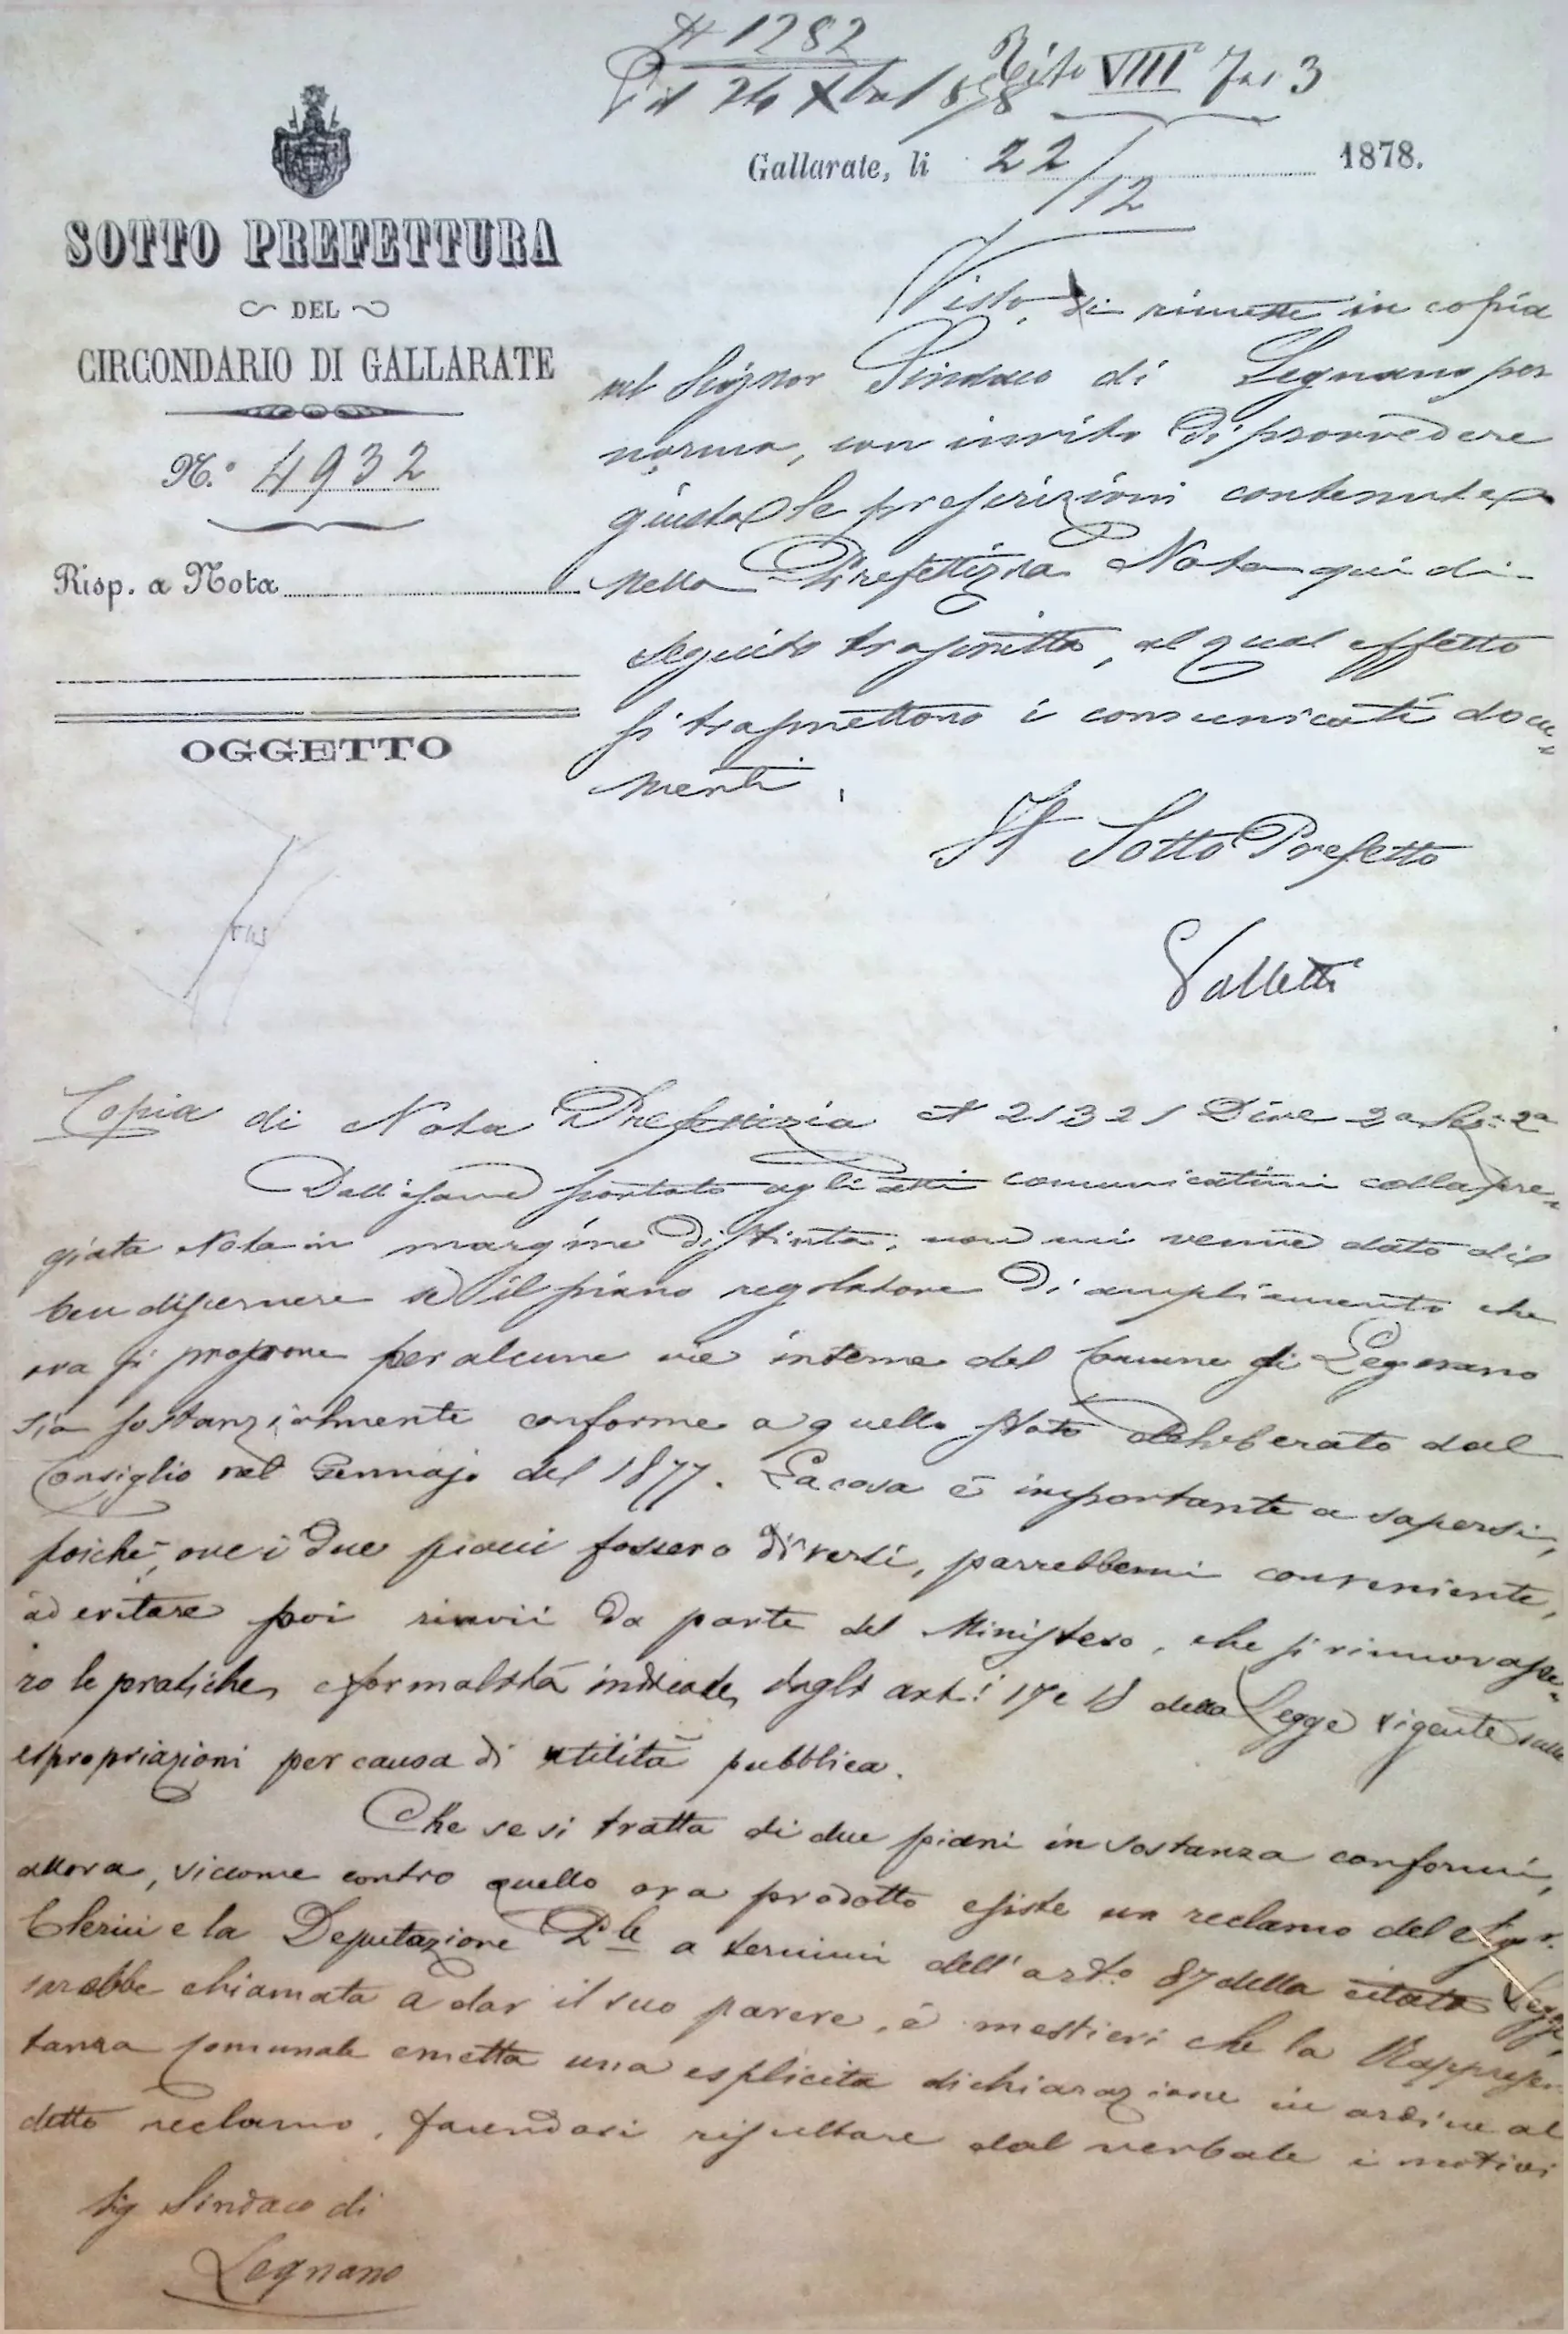 N 1282
Pil 24 Xbre 1878 Tito VIII Fas 3
Gallarate, li 22/12 1878.
SOTTO PREFETTURA
DEL
CIRCONDARIO DI GALLARATE
N.° 4932
Risp. a Nota
OGGETTO
Visto, si rimette in copia
al Signor Sindaco di Legnano per
norma, con invito di provvedere
giusta le prescrizioni contenute
nella Prefettizia Nota qui di
seguito trascritta, al qual effetto
si trasmettono i comunicati docu-
menti.
Il Sotto Prefetto
Valletti
Copia di Nota Prefettizia N 21321 Dive 2a Sez: 2a
Dall'esame portato agli atti comunicatimi colla pre-
giata Nota in margine distinta, non mi venne dato di
ben discernere se il piano regolatore di ampliamento che
ora si propone per alcune vie interne del Comune di Legnano
sia sostanzialmente conforme a quello stato deliberato dal
Consiglio nel Gennajo del 1877. La cosa è importante a sapersi,
poichè, ove i due piani fossero diversi, parrebbemi conveniente,
ad evitare poi rinvii da parte del Ministero, che si rinnovasse-
ro le pratiche e formalità indicate dagli art.i 17 e 18 della Legge vigente sulle
espropriazioni per causa di utilità pubblica.
Che se si tratta di due piani in sostanza conformi,
allora, siccome contro quello ora prodotto esiste un reclamo del Sigr.
Clerici e la Deputazione P.le a termini dell'art.o 87 della citata Legge,
sarebbe chiamata a dar il suo parere, è mestieri che la Rappresen-
tanza Comunale emetta una esplicita dichiarazione in ordine al
detto reclamo, facendosi risultare dal verbale i motivi
Sig Sindaco di
Legnano